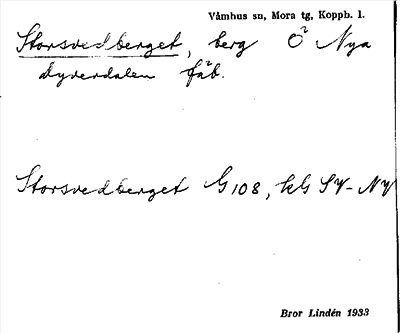 Våmhus sn, Mora tg, Koppb. l.
Storsvedberget, berg Ö² Nya
dyverdalen fäb.
Storsvedberget G108, kls SV-NV
Bror Lindén 1933